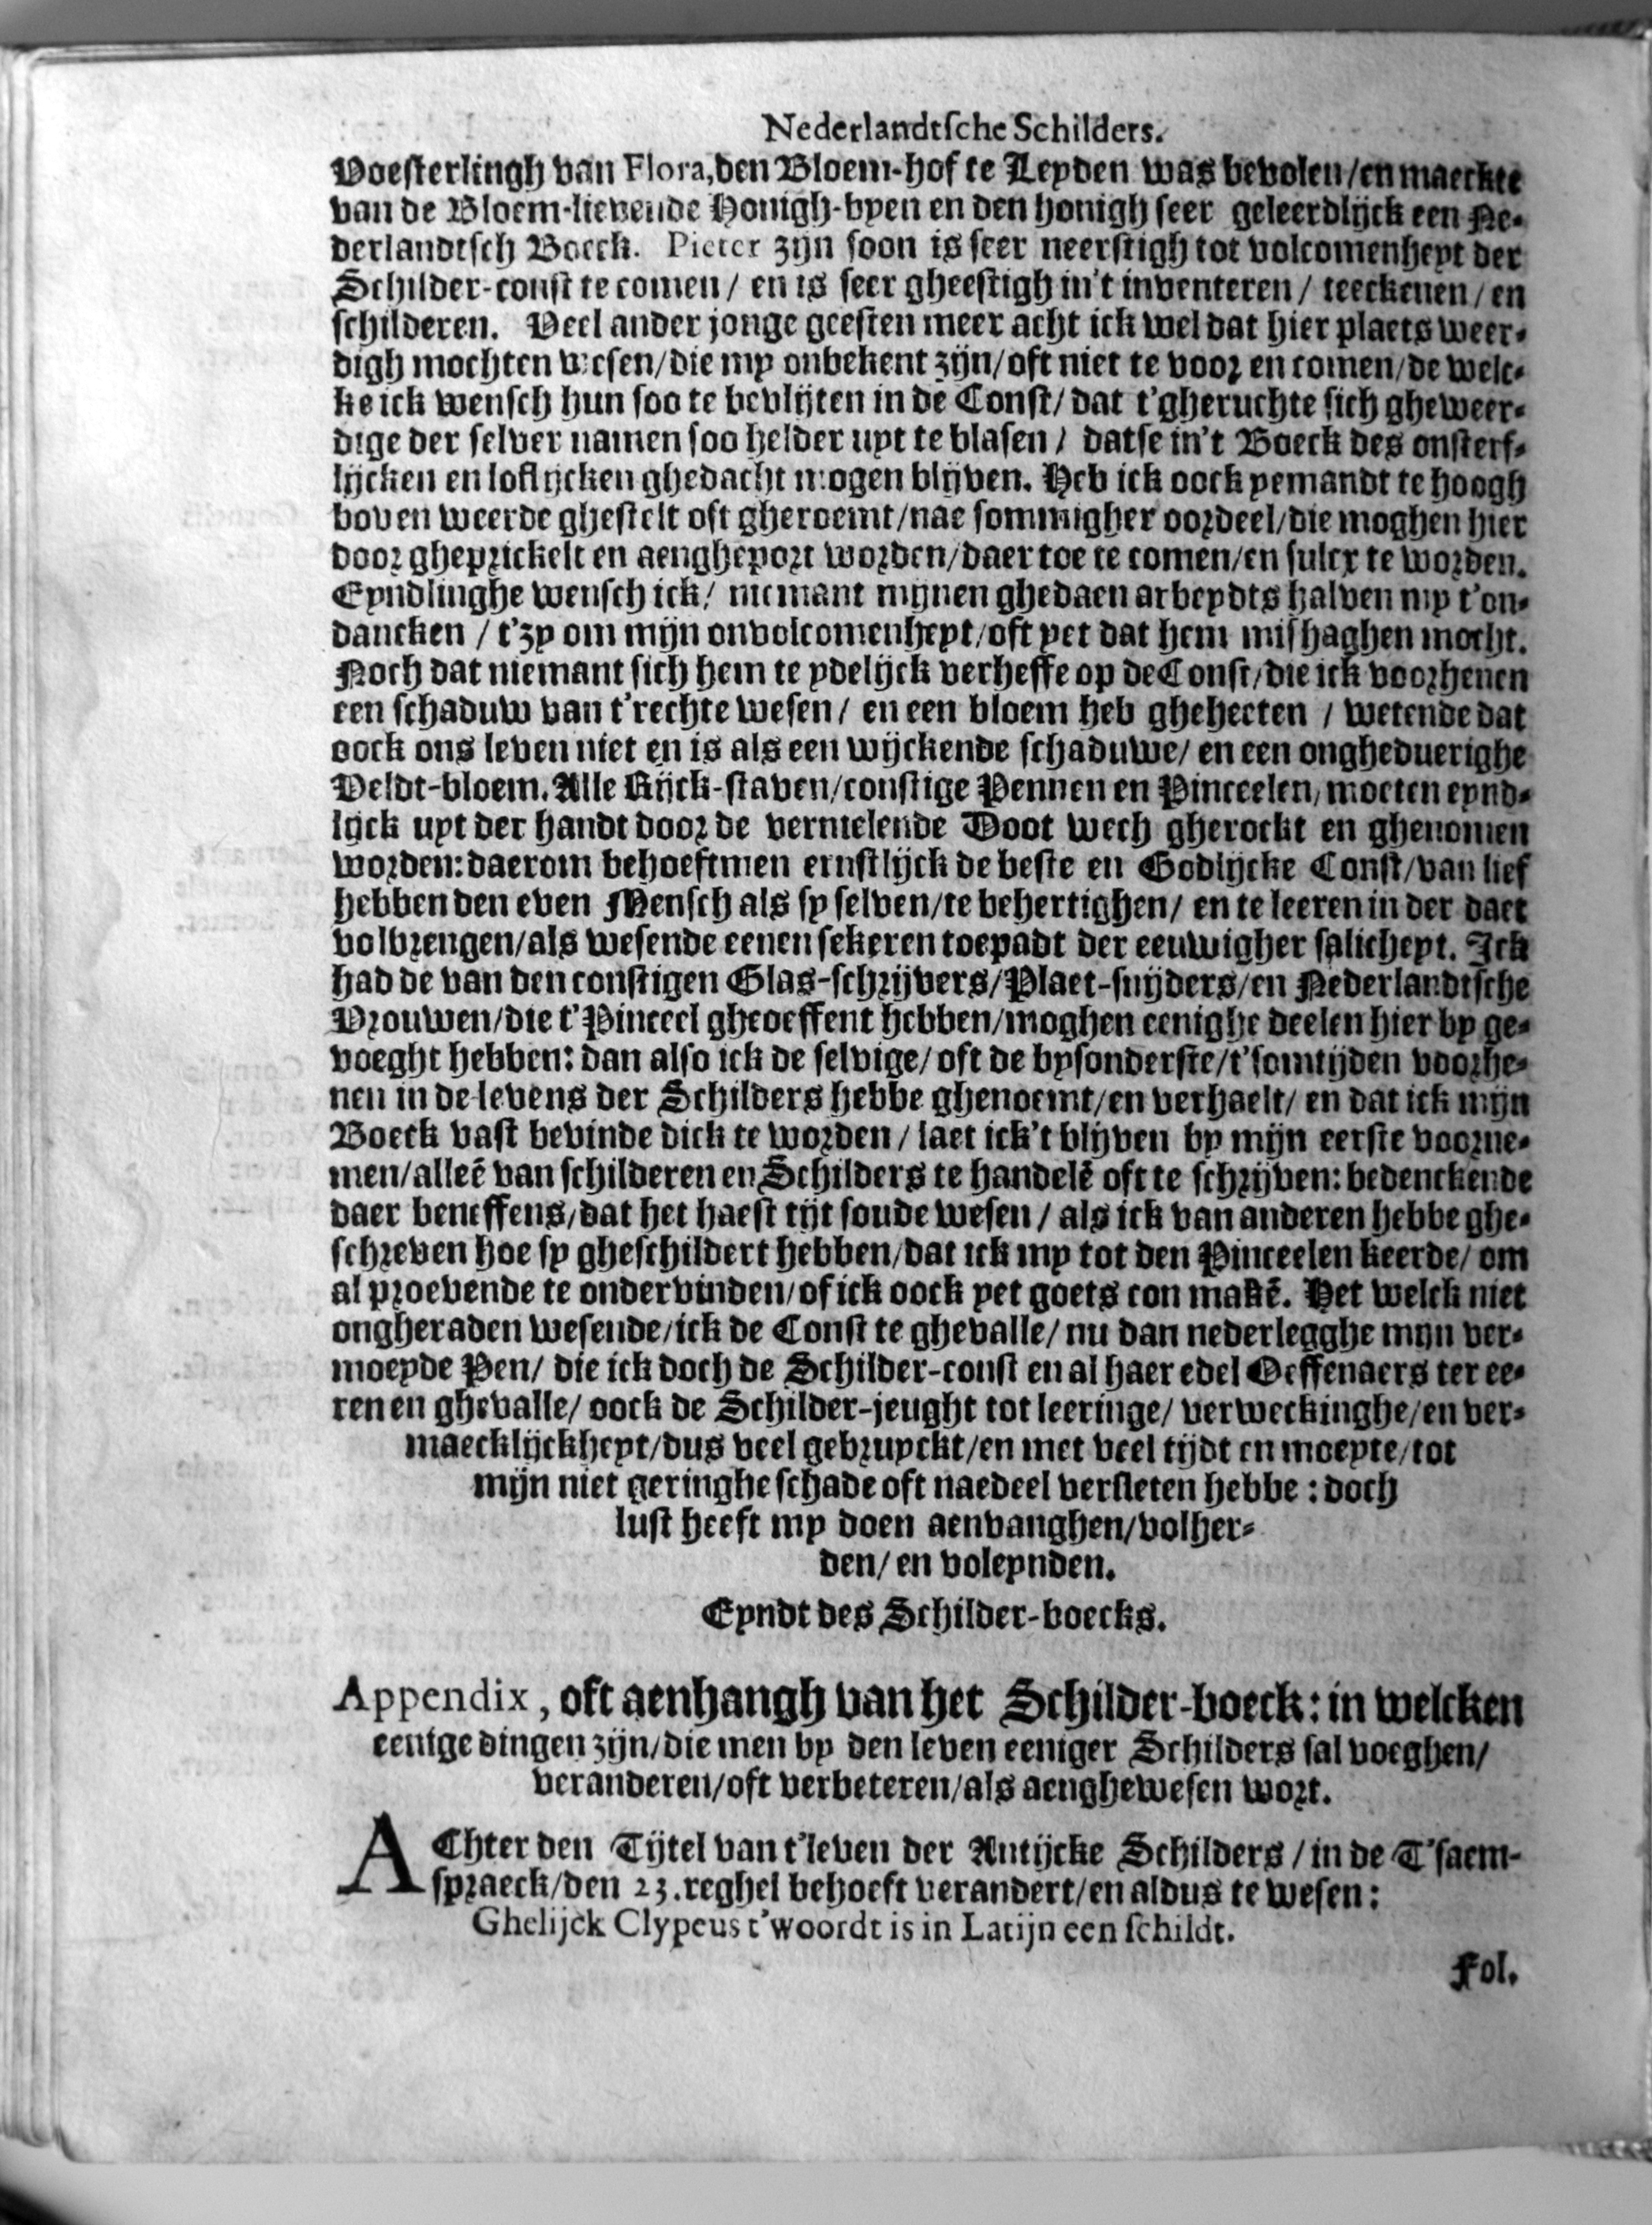 Nederlandtsche Schilders.
Voesterlingh van Flora, den Bloem-hof te Leyden was bevolen/en maeckte
van de Bloem-lievende Honigh-byen en den honigh seer geleerdlijck een Ne-
derlandtsch Boeck. Pieter zijn soon is seer neerstigh tot volcomenheyt der
Schilder-const te comen/ en is seer gheestigh in't inventeren/ teeckenen/ en
schilderen. Veel ander jonge geesten meer acht ick wel dat hier plaets weer-
digh mochten wesen/die my onbekent zijn/oft niet te voor en comen/de welc-
ke ick wensch hun soo te bevlijten in de Const/ dat t'gheruchte sich gheweer-
dige der selver namen soo helder uyt te blasen/ datse in't Boeck des onsterf-
lijcken en loflijcken ghedacht mogen blijven. Heb ick oock yemandt te hoogh
boven weerde ghestelt oft gheroemt/nae sommigher oordeel/die moghen hier
door gheprickelt en aengheport worden/daer toe te comen/en sulcx te worden.
Eyndlinghe wensch ick/ niemant mijnen ghedaen arbeydts halven my t'on-
dancken / t'zy om mijn onvolcomenheyt/oft yet dat hem mishaghen mocht.
Noch dat niemant sich hem te ydelijck verheffe op de Const/die ick voorhenen
een schaduw van t'rechte wesen/ en een bloem heb ghehecten / wetende dat
oock ons leven niet en is als een wijckende schaduwe/ en een ongheduerighe
Veldt-bloem. Alle Rijck-staven/constige Pennen en Pinceelen/ moeten eynd-
lijck uyt der handt door de vernielende Doot wech gherockt en ghenomen
worden: daerom behoeftmen ernstlijck de beste en Godlijcke Const/van lief
hebben den even Mensch als sy selven/te behertighen/ en te leeren in der daet
volbrengen/als wesende eenen sekeren toepadt der eeuwigher salicheyt. Ick
had de van den constigen Glas-schrijvers/Plaet-snijders/en Nederlandtsche
Vrouwen/die t'Pinceel gheoeffent hebben/moghen eenighe deelen hier by ge-
voeght hebben: dan also ick de selvige/ oft de bysonderste/t'somtijden voorhe-
nen in de levens der Schilders hebbe ghenoemt/en verhaelt/ en dat ick mijn
Boeck vast bevinde dick te worden / laet ick't blijven by mijn eerste voorne-
men/alleē van schilderen en Schilders te handelē oft te schrijven: bedenckende
daer beneffens/dat het haest tijt soude wesen / als ick van anderen hebbe ghe-
schreven hoe sy gheschildert hebben/dat ick my tot den Pinceelen keerde/ om
al proevende te ondervinden/of ick oock yet goets con makē. Het welck niet
ongheraden wesende/ick de Const te ghevalle/ nu dan nederlegghe mijn ver-
moeyde Pen/ die ick doch de Schilder-const en al haer edel Oeffenaers ter ee-
ren en ghevalle/ oock de Schilder-jeught tot leeringe/ verweckinghe/en ver-
maecklijckheyt/dus veel gebruyckt/en met veel tijdt en moeyte/tot
mijn niet geringhe schade oft naedeel versleten hebbe : doch
lust heeft my doen aenvanghen/volher-
den/ en voleynden.
Eyndt des Schilder-boecks.
Appendix, oft aenhangh van het Schilder-boeck: in welcken
eenige dingen zijn/die men by den leven eeniger Schilders sal voeghen/
veranderen/oft verbeteren/als aenghewesen wort.
AChter den Tijtel van t'leven der Antijcke Schilders / in de T'saem-
spraeck/den 23. reghel behoeft verandert/en aldus te wesen:
Ghelijck Clypeus t'woordt is in Latijn een schildt.
Fol.